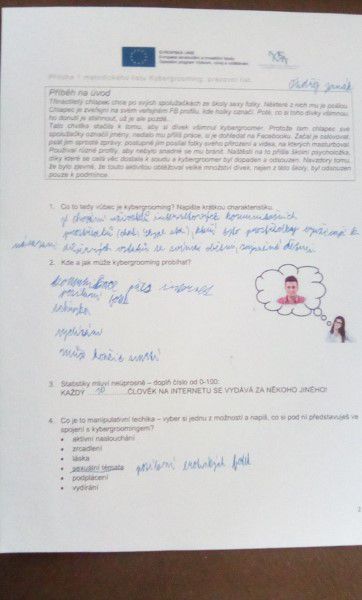 EVROPSKÁ UNIE
Evropské strukturální a investiční fondy
Operační program Výzkum, vývoj a vzdělávání
Příloha 1 metodického listu Kybergrooming, pracovní list
Ondřej
Příběh na úvod
Třináctiletý chlapec chce po svých spolužačkách ze školy sexy fotky. Některé z nich mu je pošlou.
Chlapec je zveřejní na svém veřejném FB profilu, kde holky označí. Poté, co si toho dívky všimnou,
ho donutí je stáhnout, už je ale pozdě.
Tato chvilka stačila k tomu, aby si dívek všimnul kybergroomer. Protože tam chlapec své
spolužačky označil jmény, nedalo mu příliš práce, si je dohledat na Facebooku. Začal je oslovovat,
psát jim sprosté zprávy, postupně jim posílal fotky svého přirození a videa, na kterých masturboval.
Používal různé profily, aby nebylo snadné se mu bránit. Naštěstí na to přišla školní psycholožka,
díky které se celá věc dostala k soudu a kybergroomer byl dopaden a odsouzen. Navzdory tomu,
že bylo zjevné, že touto aktivitou obtěžoval velké množství dívek, nejen z této školy, byl odsouzen
pouze k podmínce.
1. Co to tedy vůbec je kybergrooming? Napište krátkou charakteristiku.
je chování uživatelů internetových komunikačních
prostředků
2. Kde a jak může kybergrooming probíhat?
přes internet
posílání fotek
schůzka
vydírání
může končit smrtí
3. Statistiky mluví neúprosně – doplň číslo od 0-100:
KAŽDÝ ČLOVĚK NA INTERNETU SE VYDÁVÁ ZA NĚKOHO JINÉHO!
4. Co je to manipulativní technika – vyber si jednu z možností a napiš, co si pod ní představuješ ve
spojení s kybergroomingem?
• aktivní naslouchání
• zrcadlení
• láska
• sexuální témata posílání erotických fotek
• podplácení
• vydírání
2